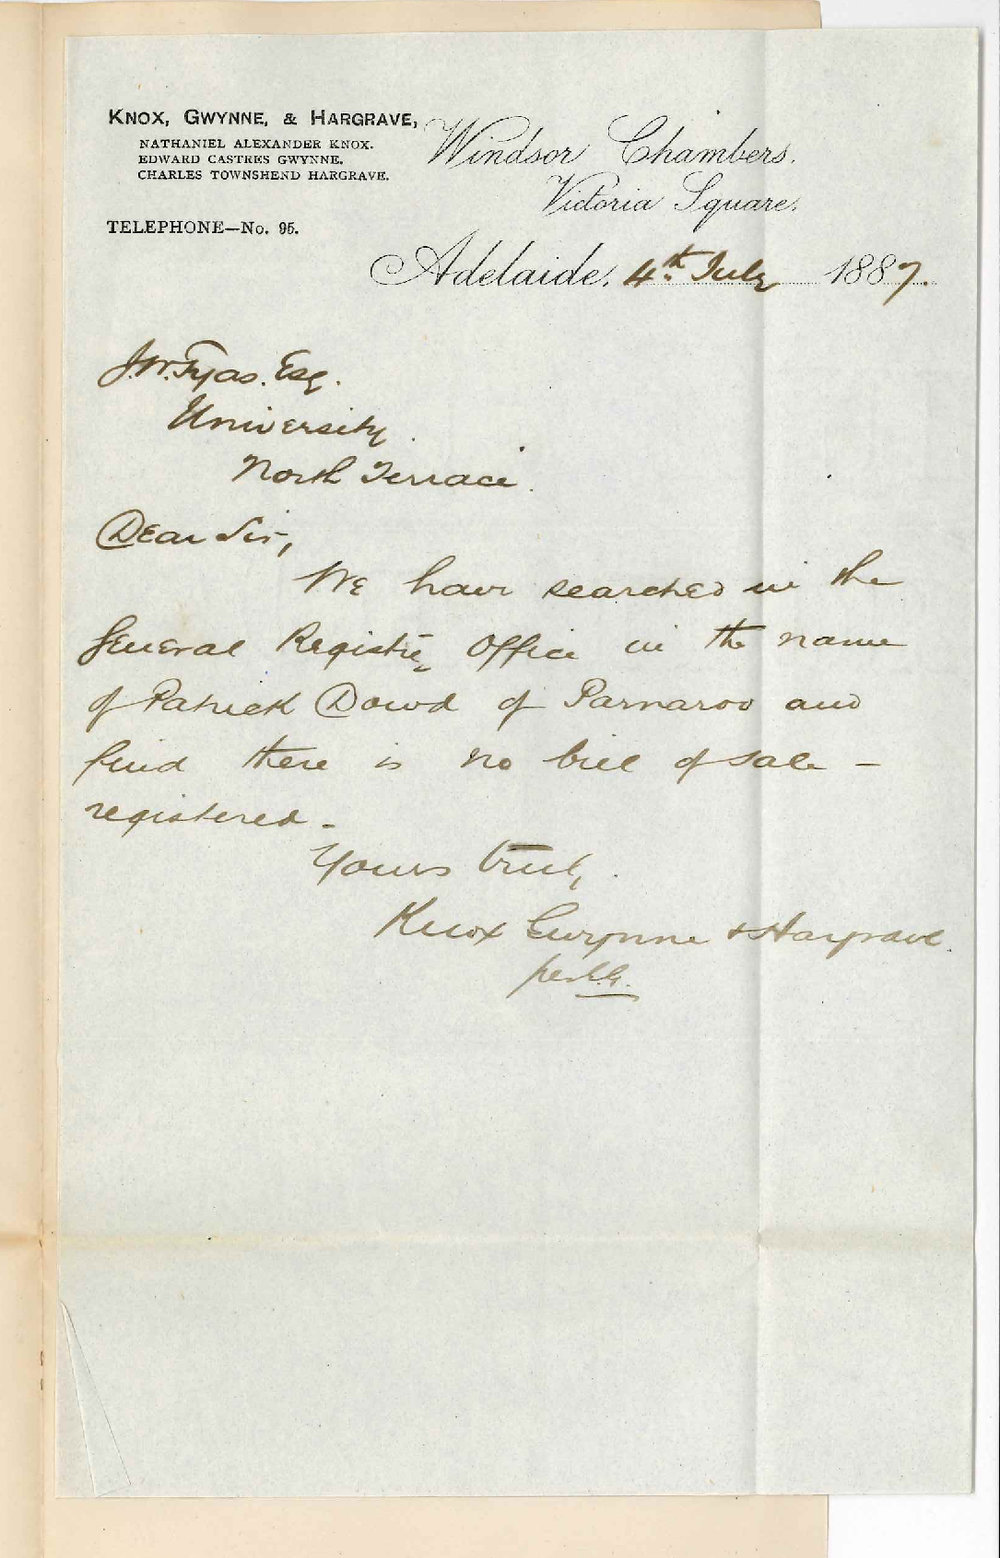 KNOX, GWYNNE, & HARGRAVE,
NATHANIEL ALEXANDER KNOX.
EDWARD CASTRES GWYNNE.
CHARLES TOWNSHEND HARGRAVE.
TELEPHONE—No. 95.
Windsor Chambers.
Victoria Square.
Adelaide, 4th July 1887.
J. W. Tyas. Esq.
University.
North Terrace.
Dear Sir,
We have searched in the
General Registry Office in the name
of Patrick Dowd of Parnaroo and
find there is no bill of sale –
registered –
Yours truly,
Knox Gwynne & Hargrave.
per